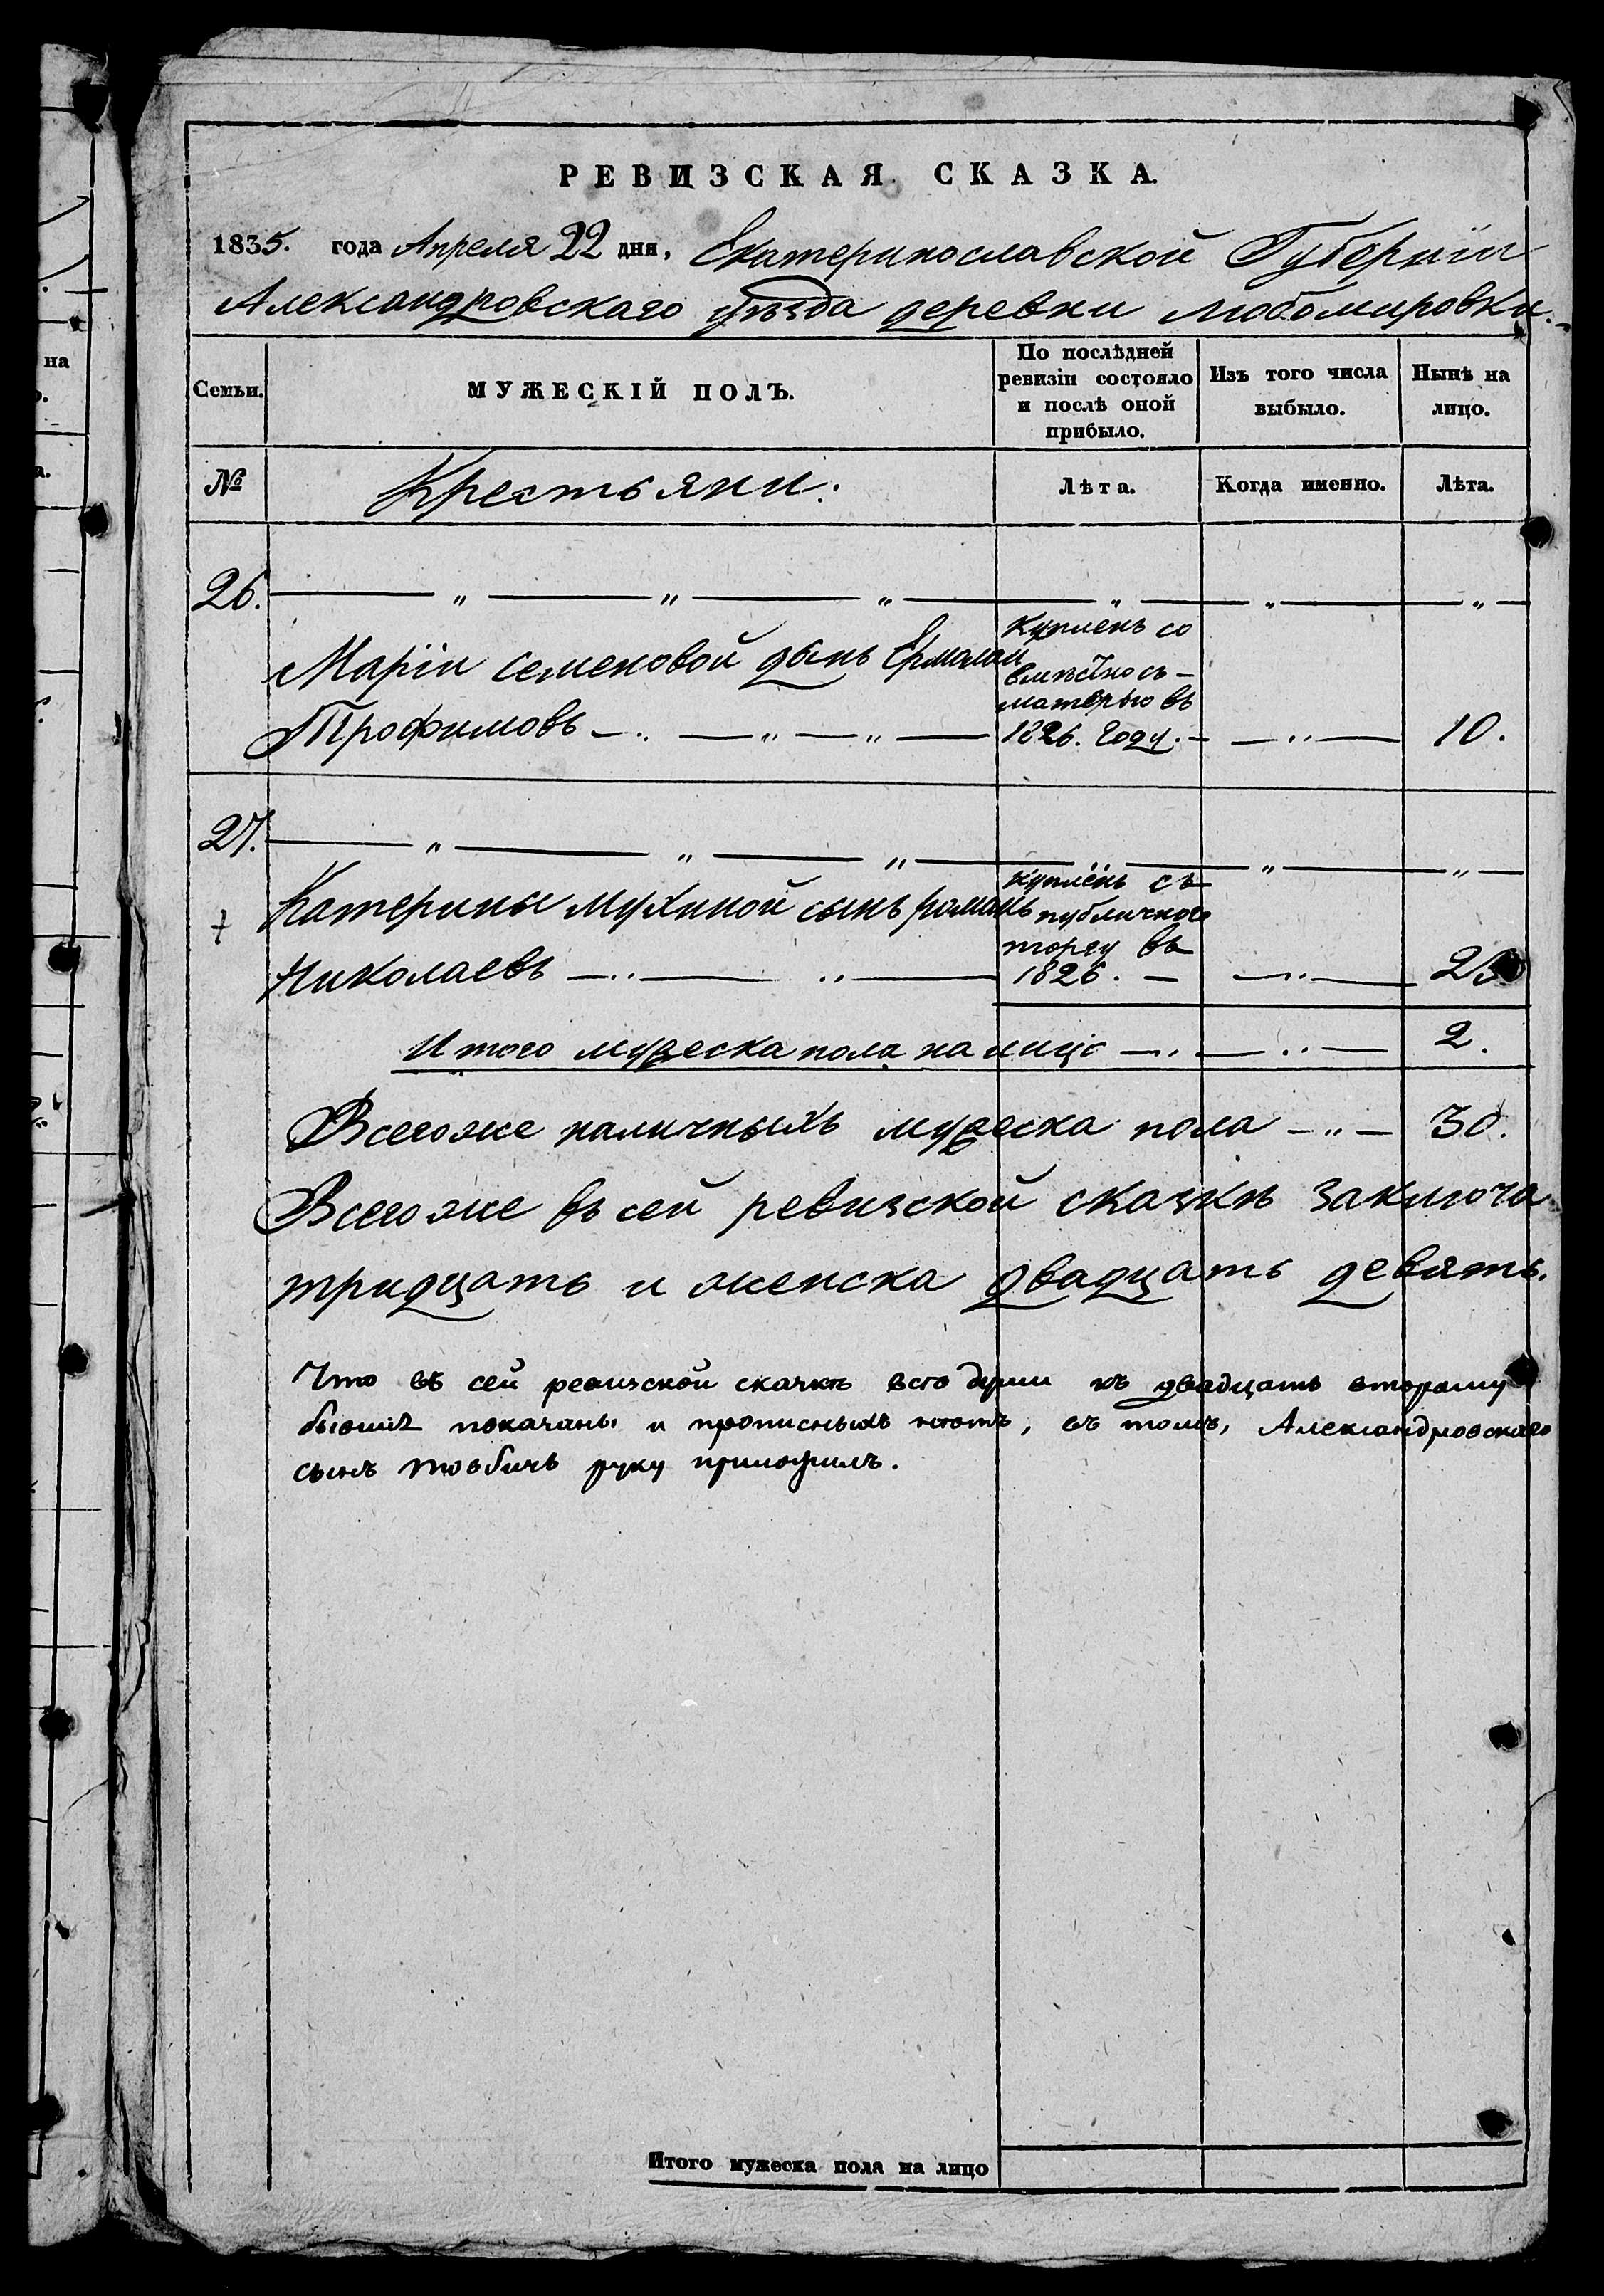 на
о.
а.
РЕВИЗСКАЯ СКАЗКА.
1835. года Апреля 22 дня, Екатеринославской Губернiи
Александровскаго уѣзда деревни Любомировки.
Семьи.
МУЖЕСКІЙ ПОЛЪ.
По послѣдней ревизіи состояло и послѣ оной прибыло.
Изъ того числа выбыло.
Нынѣ на лицо.
№
Крестьяни:
Лѣта.
Когда именно.
Лѣта.
26. — „ — „ — „ — „ — „ — „ —
Куплень со
Маріи Семеновой сынь Ермолаи
вмѣстно съ —
матерью въ
Трофимовъ — „ — „ — „ — 1826. году. — — „ — 10.
27. — „ — „ — „ — „ — „ — „ —
куплень съ
Катерины Мухиной сынъ романъ публичного
торгу въ
Николаевъ — „ — „ — 1826. — — „ — 25
Итого мужеска пола налицо — „ — „ — 2.
Всегоже наличныхъ мужеска пола — „ — 30.
Всегоже въ сей ревизской сказкѣ заключа
тридцать и женска двадцать девять.
Что въ сей ревизской сказкѣ всѣ души къ двадцать второму
бывшiе показаны и прописныхъ нѣтъ, въ томъ, Александровскаго
сынъ руку приложилъ.
Итого мужеска пола на лицо